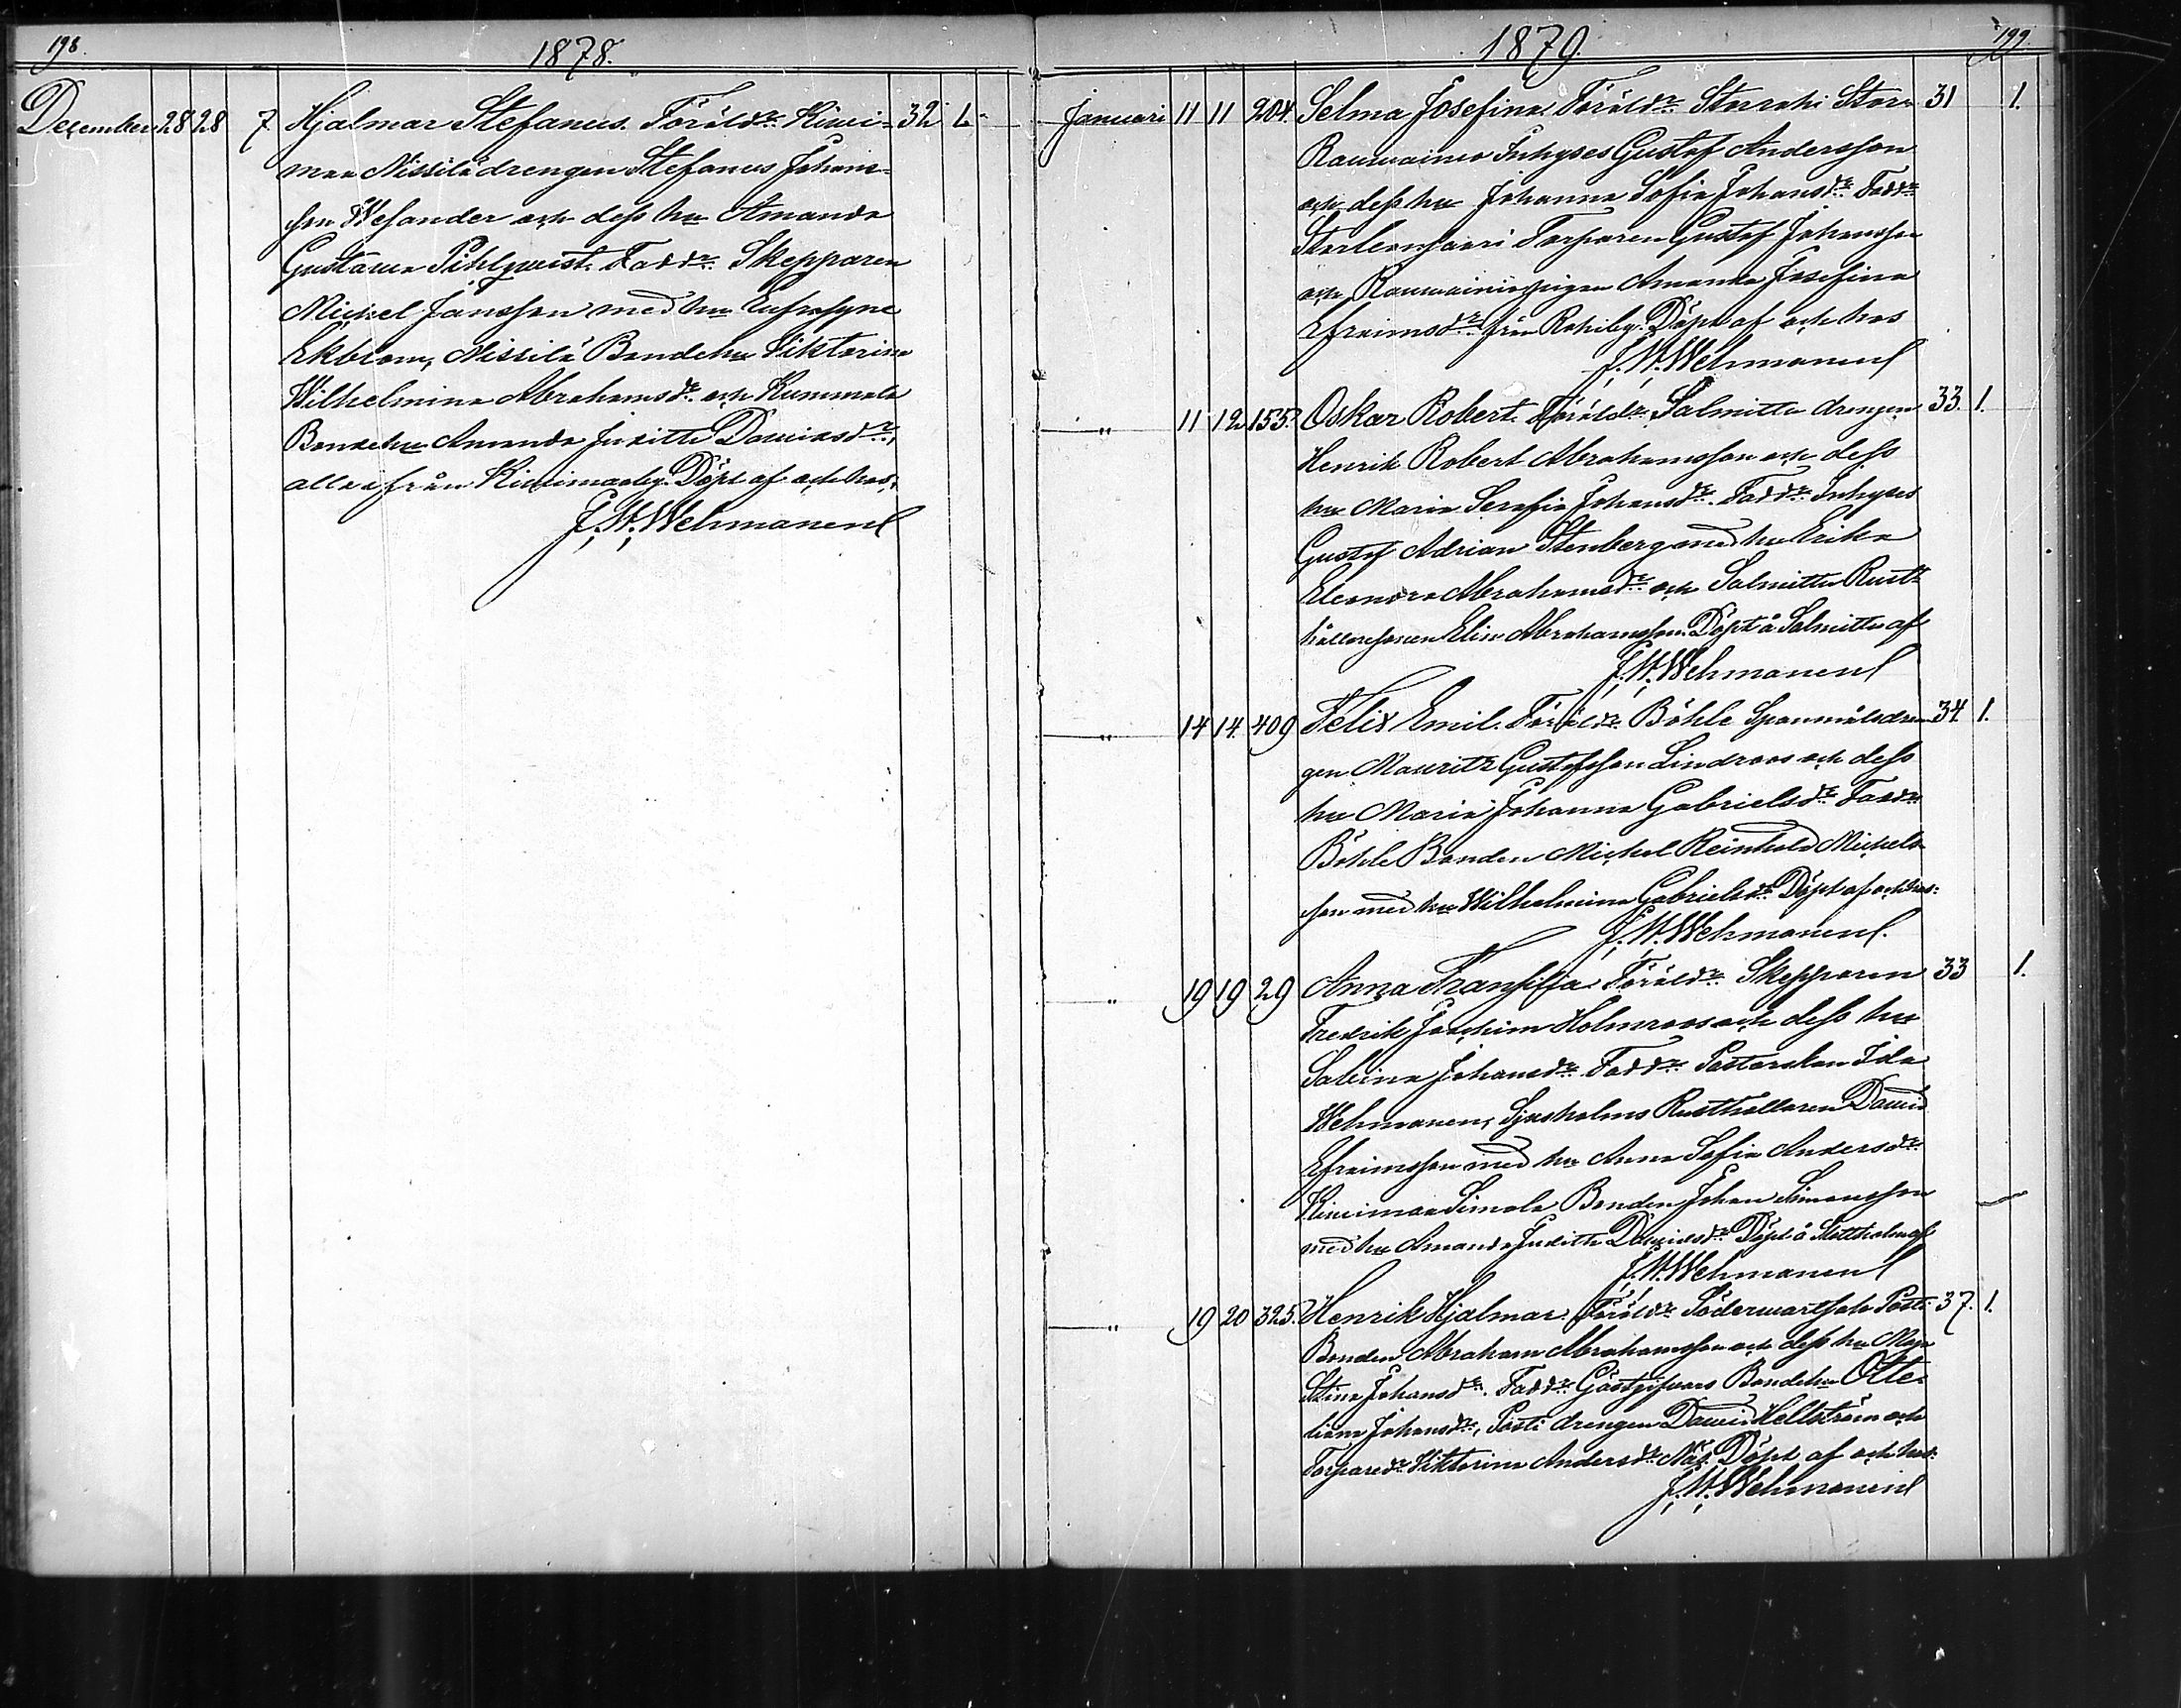 198.
1878.
December 28 28 7 Hjalmar Stefanus. Föräldr: Kiwi- 32 1.
maa Nissilä drengen Stefanus Johans-
son Wesander och dess hu Amanda
Gustawa Pihlqvist. Faddr: Skepparen
Mickel Jansson med hu Eufrosyne
Ekbom, Nissilä Bondehu Viktorina
Wilhelmina Abrahamsdr och Kummala
Bondehu Amanda Juditha Dawidsdr,
alla från Kiwimaaby. Döpt af och hos:
J. W. Wehmanen
1879.
199.
Januari 11 11 204. Selma Josefina. Föräldr: Storrahi Stor- 31 1.
Raumainio Inhyses Gustaf Andersson
och dess hu Johanna Sofia Johansdr. Faddr:
Torparen Gustaf Johansson
och Raumainio pigan Amanda Josefina
Efraimsdr från Rahiby. Döpt af och hos
J. W. Wehmanen
" 11 12 155. Oskar Robert. Föräldr: Salmitta drengen 33. 1.
Henrik Robert Abrahamsson och dess
hu Maria Serafia Johansdr. Faddr: Inhyses
Gustaf Adrian Stenberg med hu Erika
Eleonora Abrahamsdr och Salmitta Rust-
hållaresonen Elis Abrahamsson. Döpt å Salmitta af
J. W. Wehmanen
" 14 14. 409 Felix Emil. Föräldr: Böhle Spanmålsdren- 34 1.
gen Mauritz Gustafsson Lindroos och dess
hu Maria Johanna Gabrielsdr. Faddr:
Böhle Bonden Mickel Reinhold Mickels-
son med hu Wilhelmina Gabrielsdr. Döpt af och hos:
J. W. Wehmanen.
" 19 19 29 Anna Fransiska. Föräldr: Skepparen 33 1.
Fredrik Joachim Holmroos och dess hu
Sabina Johansdr. Faddr: Pastorskan Ida
Wehmanen, Sjusholms Rusthållaren Dawid
Efraimsson med hu Anna Sofia Andersdr
Kiwimaa Simola Bonden Johan Simonsson
med hu Amanda Juditha Dawidsdr. Döpt å af
J. W. Wehmanen
" 19 20 325. Henrik Hjalmar. Föräldr: Söderwartsala Posti 37. 1.
Bonden Abraham Abrahamsson och dess hu Maja
Stina Johansdr. Faddr: Gästgifvars Bondehu Otte-
liana Johansdr, Posti drengen Dawid Hellström och
Torparedr Viktorina Andersdr Döpt af och hos:
J. W. Wehmanen